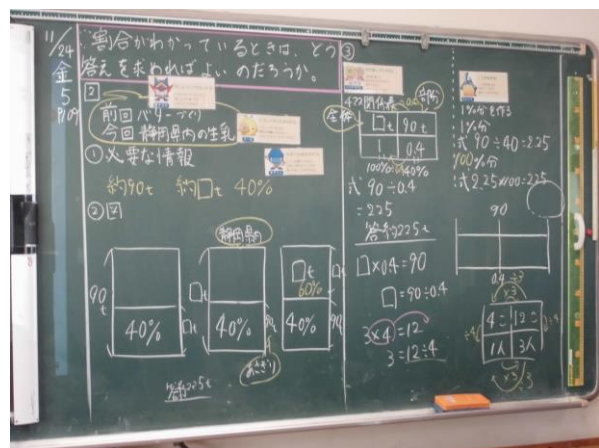 11/24
金
5
P.109
割合がわかっているときは、どう
答えを求めればよいのだろうか。
2
前回 バターづくり
今回 静岡県内の生乳
① 必要な情報
約90t 約□t 40%
② 図
90t
40%
静岡県内
□t
40%
90t
あさぎり
□t
60%
40%
90t
答 225t
③
4マス関係表
×0.4
全体
部分
□t 90t
1 0.4
100% 40%
式 90÷0.4
=225
答 約225t
□×0.4=90
□=90÷0.4
3×4=12
3=12÷4
1%分を作る
1%分
式 90÷40=2.25
100%分
式 2.25×100=225
90
0.4
÷3
×3
4こ 12こ
1人 3人
÷4
×3
÷3